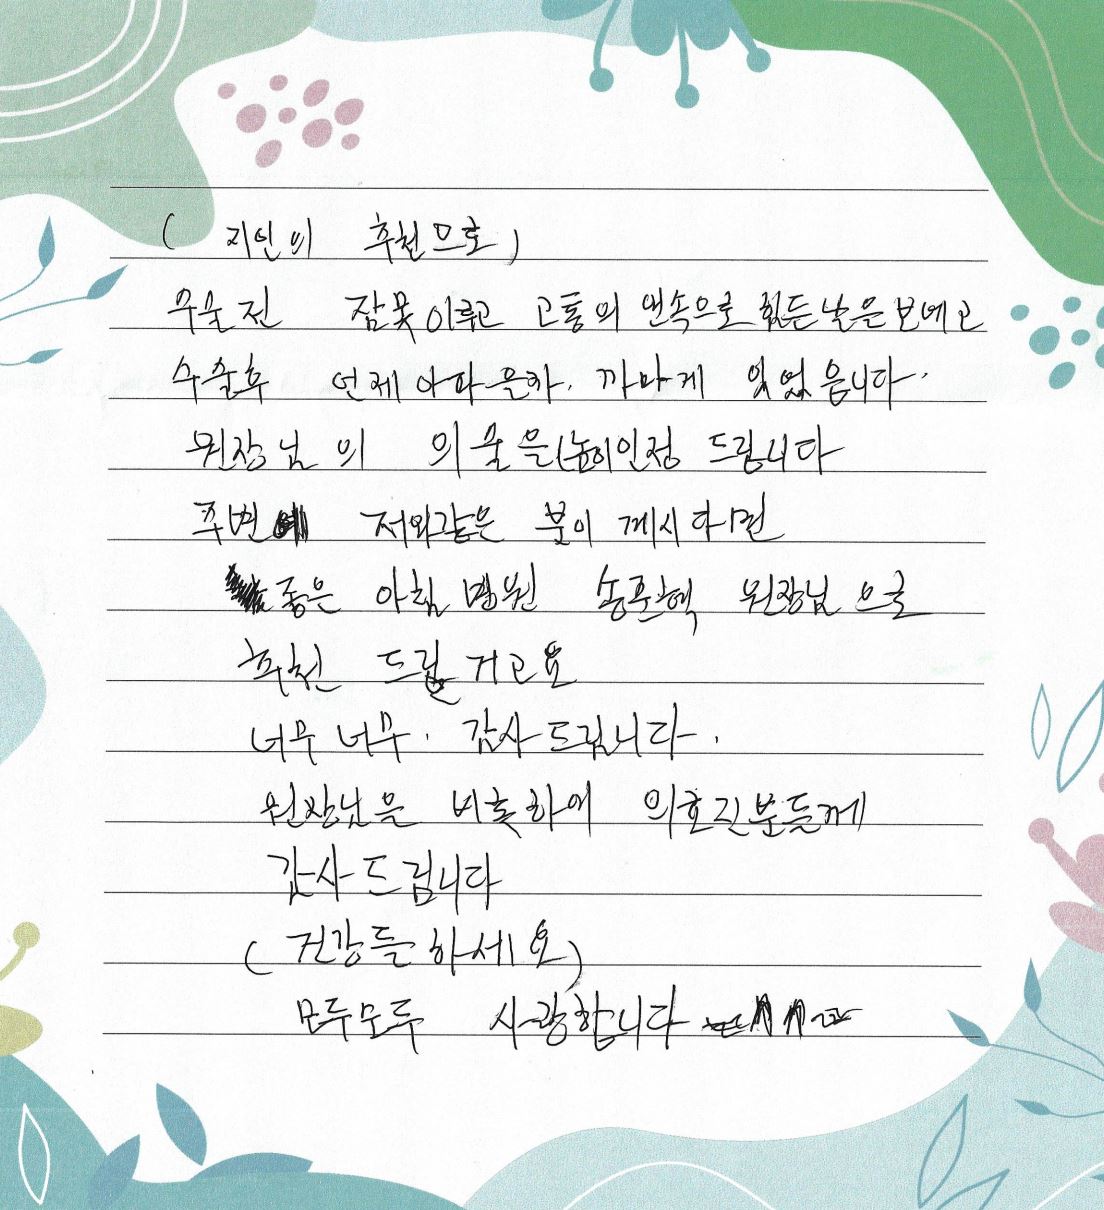 ( 지인의 추천으로)
수술전 잠못이루고 고통의 연속으로 힘든날은보네고
수술후 언제아파은가. 까마게 잊었읍니다.
원장님의 의술을높이인정 드립니다
주변에 저와같은 분이 게시다면
좋은 아침 병원 송준혁 원장님으로
추천 드릴거고요
너무너무. 감사드립니다.
원장님을 비롯하여 의료진분들께
감사드립니다
( 건강들하세요)
모두모두 사랑합니다